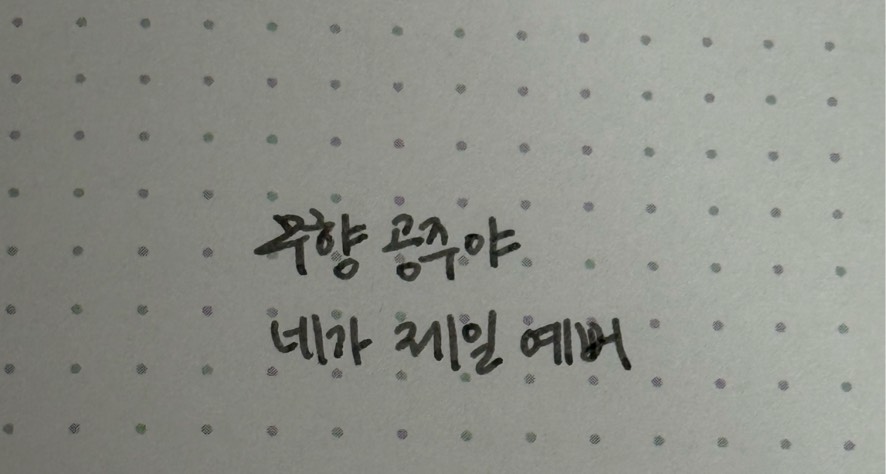 무향 공주야
네가 제일 예뻐